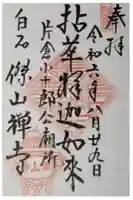 奉拝
令和六年八月廿九日
拈華釋迦如來
片倉小十郎公廟所
白石 傑山禅寺